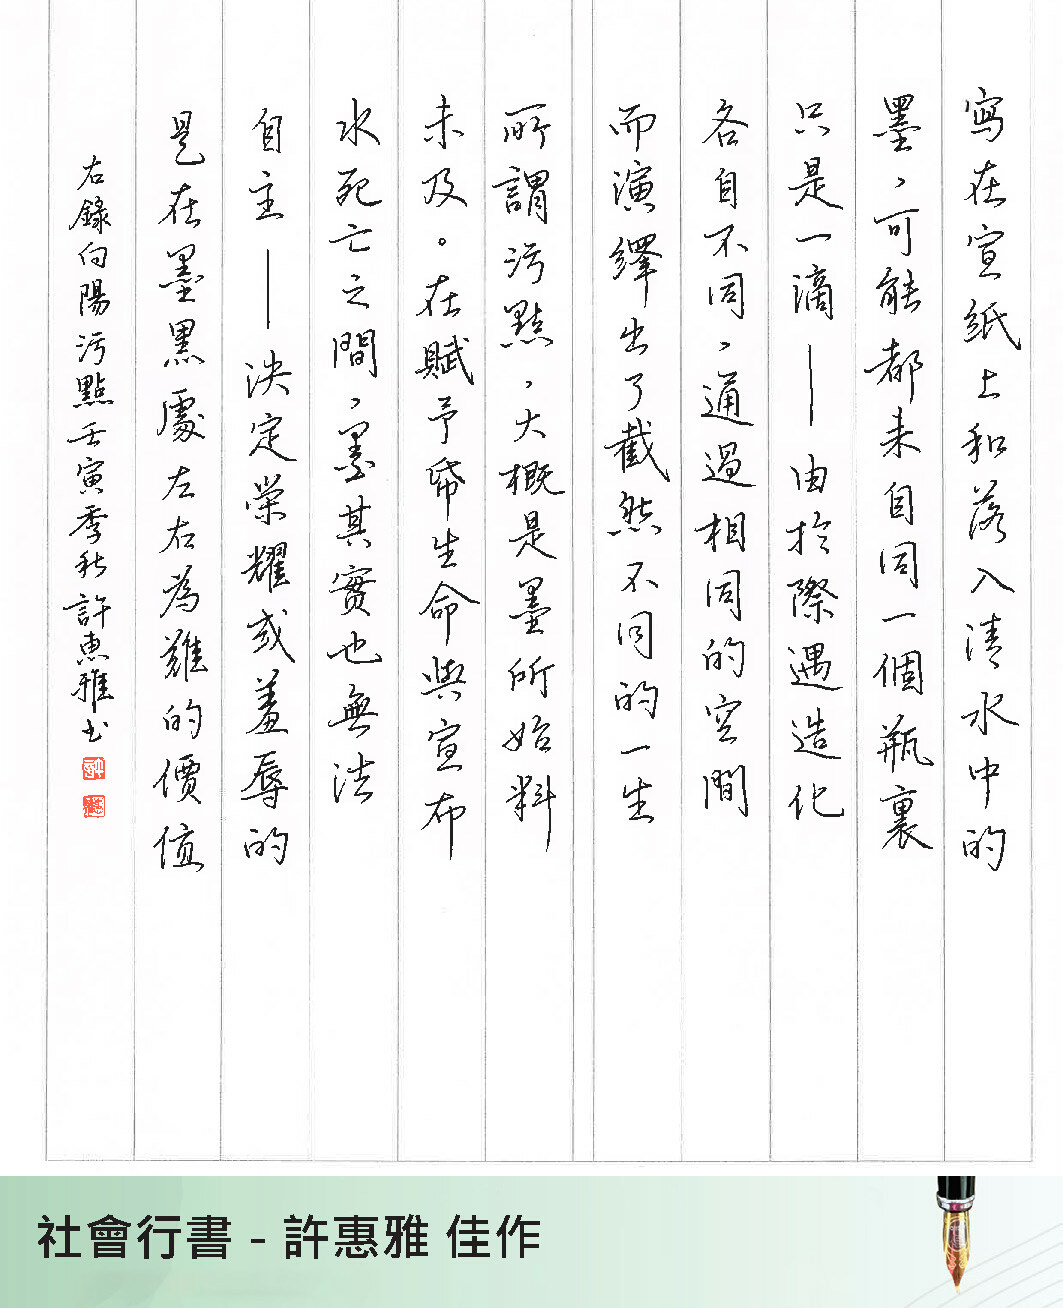 寫在宣紙上和落入清水中的
墨，可能都來自同一個瓶裏
只是一滴——由於際遇造化
各自不同，通過相同的空間
而演繹出了截然不同的一生
所謂污點，大概是墨所始料
未及。在賦予帋生命與宣布
水死亡之間，墨其實也無法
自主——決定榮耀或羞辱的
是在墨黑處左右為難的價值
右錄向陽污點壬寅季秋許惠雅書
社會行書 - 許惠雅 佳作